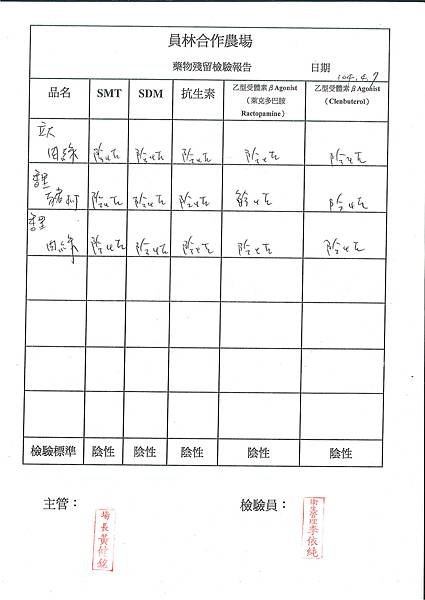 員林合作農場
藥物殘留檢驗報告 日期 104.4.7
品名 SMT SDM 抗生素 乙型受體素βAgonist (萊克多巴胺 Ractopamine) 乙型受體素βAgonist (Clenbuterol)
肉絲 陰性 陰性 陰性 陰性 陰性
陰性 陰性 陰性 陰性 陰性
肉絲 陰性 陰性 陰性 陰性 陰性
檢驗標準 陰性 陰性 陰性 陰性 陰性
主管： 檢驗員：
場長黃 衛生管理李依純